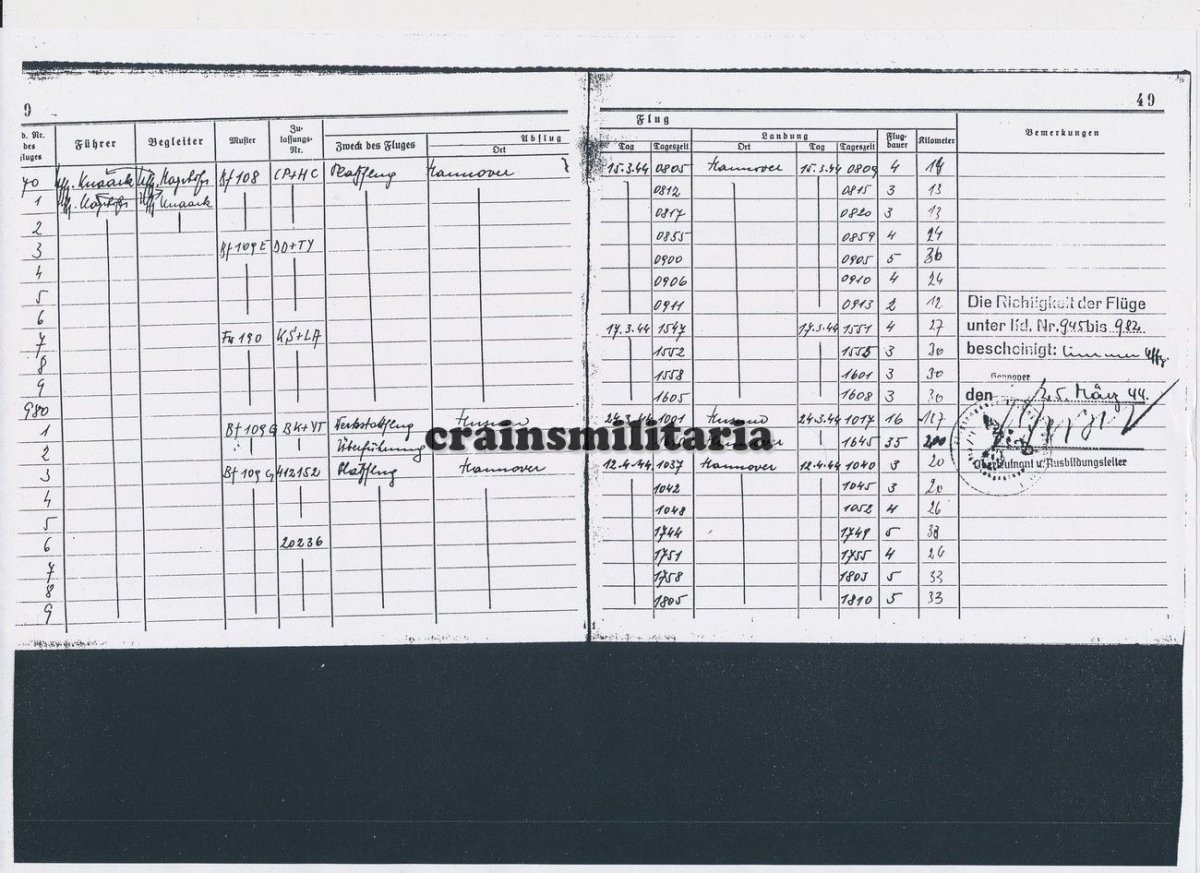 9
49
d. Nr. des Fluges Führer Begleiter Muster Zu-lassungs-Nr. Zweck des Fluges Abflug Ort
Flug
Tag Tageszeit Landung Ort Tag Tageszeit Flug-dauer Kilometer Bemerkungen
70 Knaack Bf 108 CP+HC Platzflug Hannover 15.3.44 0805 Hannover 15.3.44 0809 4 18
1 Knaack 0812 0815 3 13
2 0817 0820 3 13
3 Bf 109 E DD+TY 0855 0859 4 24
4 0900 0905 5 36
5 0906 0910 4 24
6 0911 0913 2 12
7 Fw 190 KS+LA 17.3.44 1547 17.3.44 1551 4 27
8 1552 1555 3 30
9 1558 1601 3 30
980 1605 1608 3 30
1 Bf 109 G BK+YT Werkstattflug 24.3.44 1001 24.3.44 1017 16 117
2 Überführung 1645 35 200
3 Bf 109 G 412152 Platzflug Hannover 12.4.44 1037 Hannover 12.4.44 1040 3 20
4 1042 1045 3 20
5 1048 1052 4 26
6 20236 1744 1749 5 33
7 1751 1755 4 26
8 1758 1803 5 33
9 1805 1810 5 33
Die Richtigkeit der Flüge
unter lfd. Nr. 945 bis 982
bescheinigt:
Hannover
den 25. März 44
Oberleutnant u. Ausbildungsleiter
crainsmilitaria